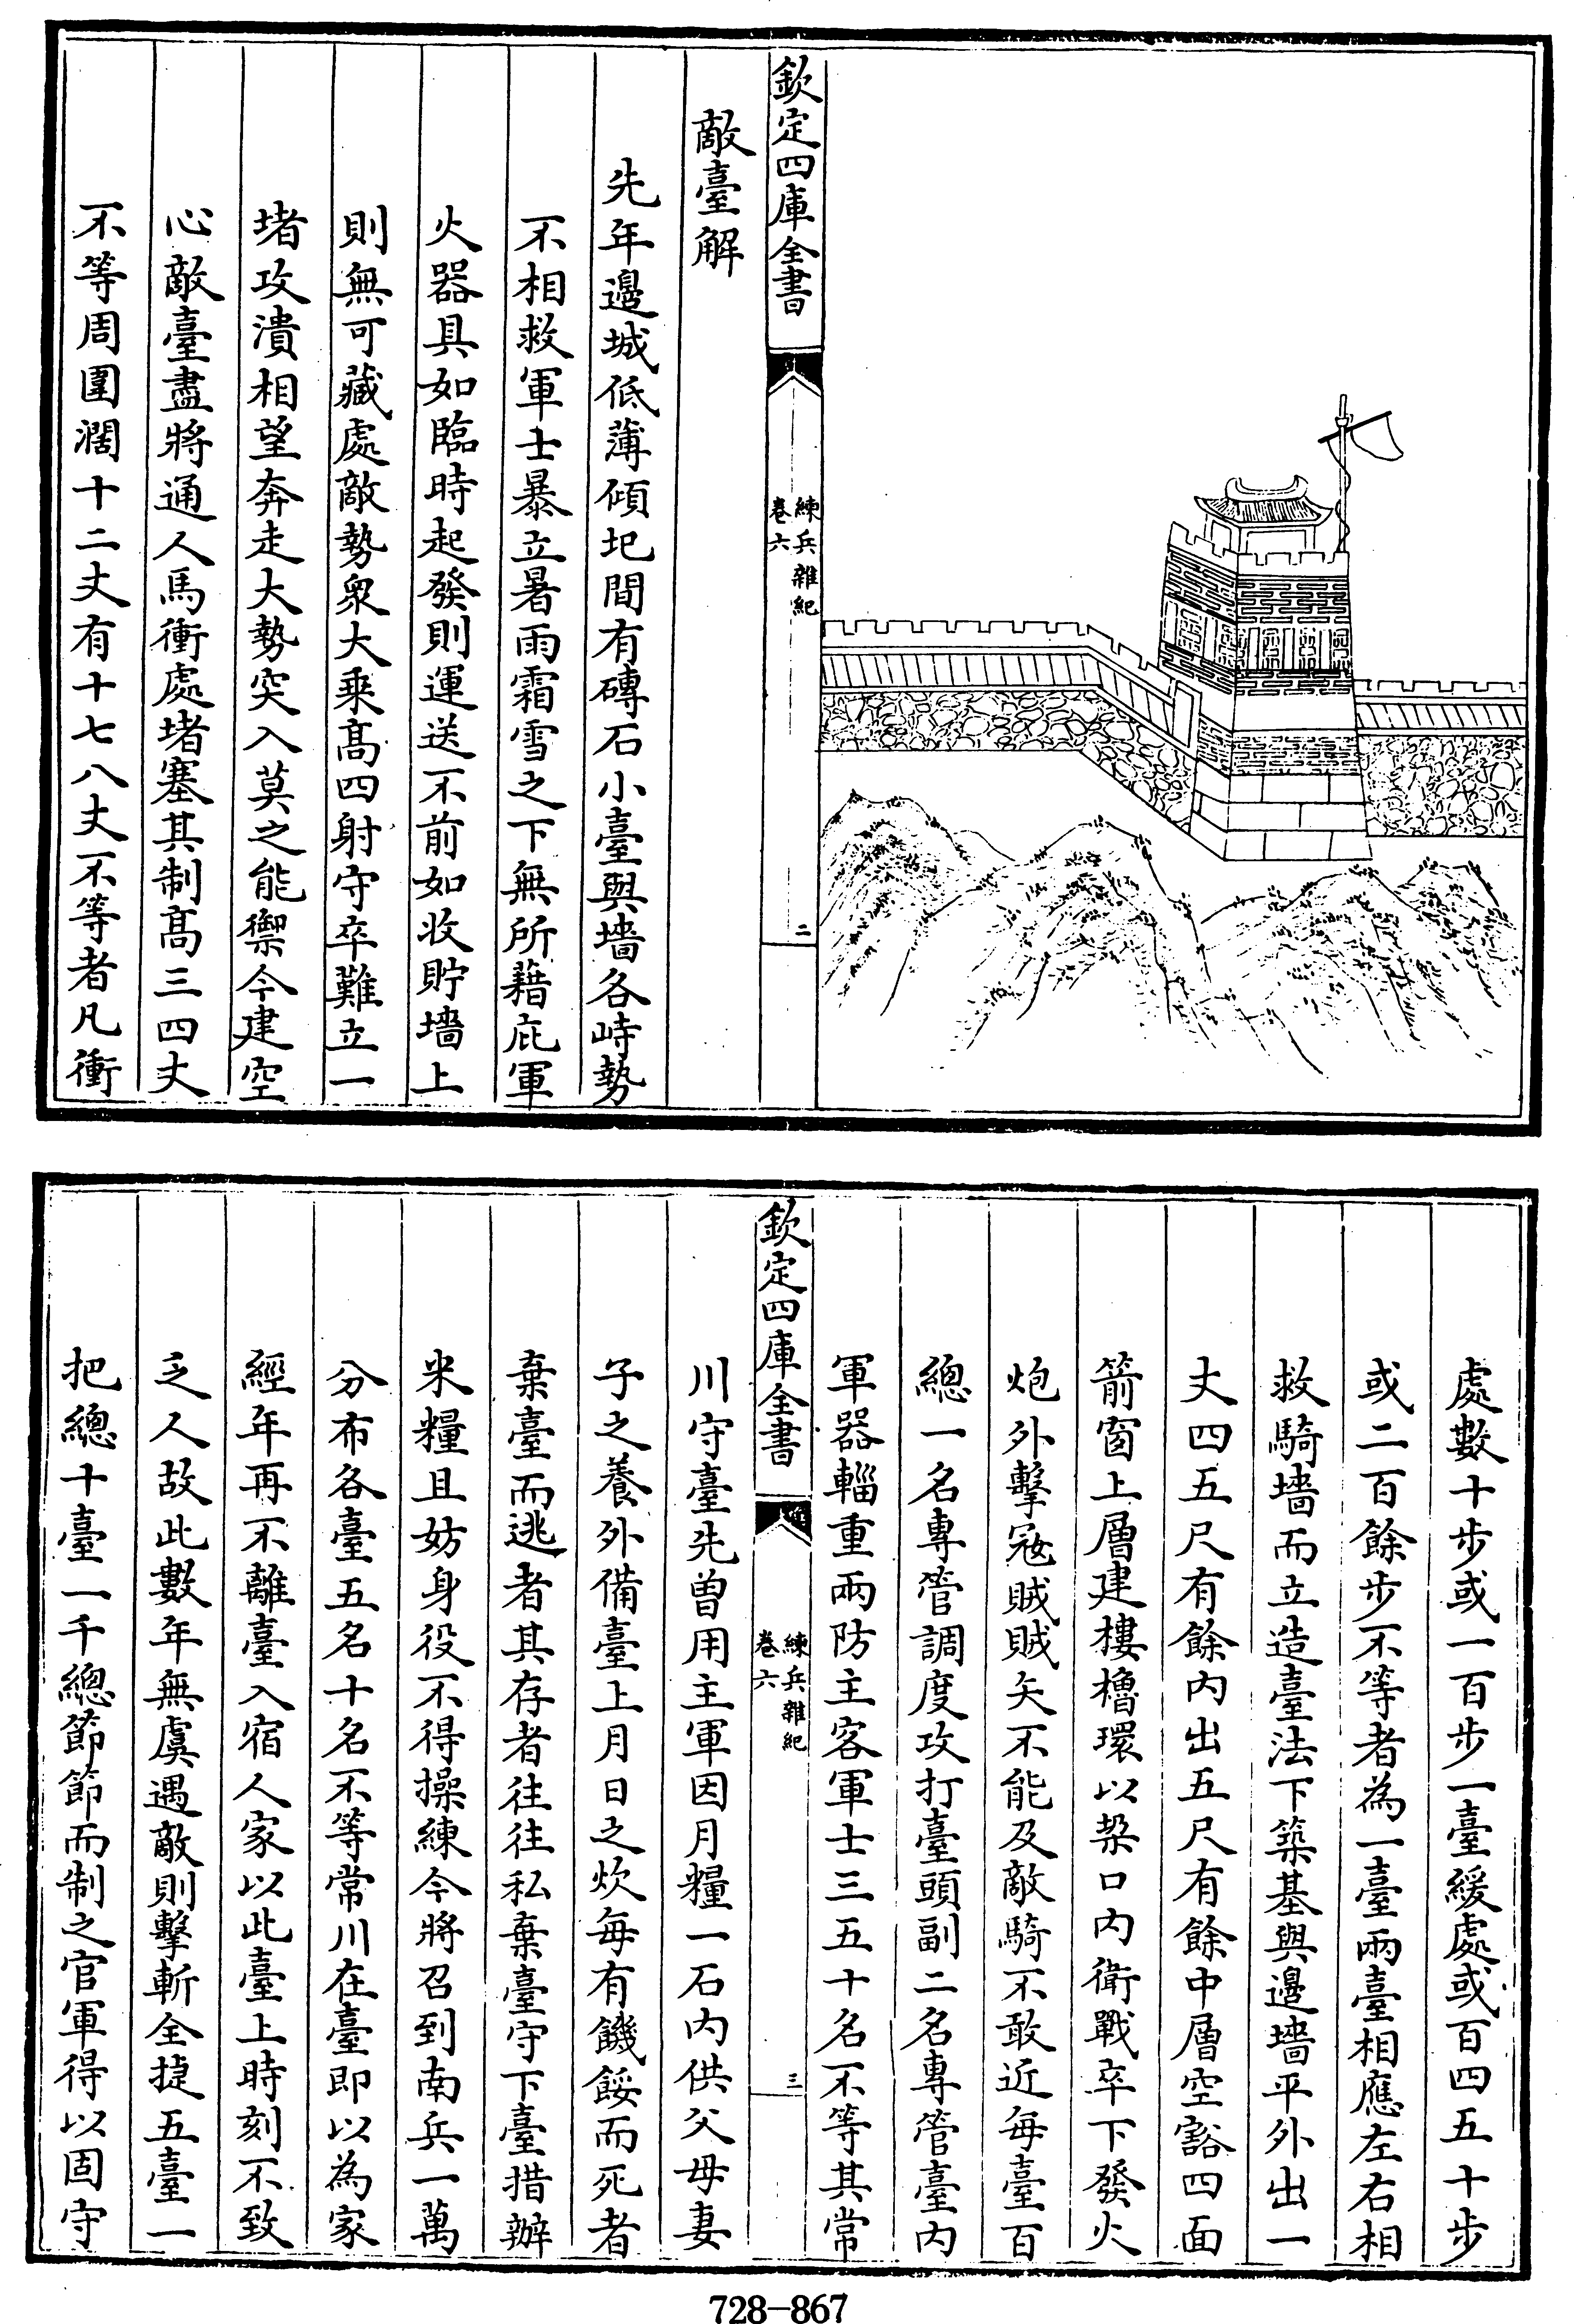 欽定四庫全書
練兵雜紀
卷六
二
敵臺解
先年邊城低薄傾圮間有磚石小臺與墻各峙勢
不相救軍士暴立暑雨霜雪之下無所藉庇軍
火器具如臨時起發則運送不前如收貯墻上
則無可藏處敵勢衆大乘高四射守卒難立一
堵攻潰相望奔走大勢突入莫之能禦今建空
心敵臺盡將通人馬衝處堵塞其制高三四丈
不等周圍濶十二丈有十七八丈不等者凡衝
處數十步或一百步一臺緩處或百四五十步
或二百餘步不等者為一臺兩臺相應左右相
救騎墻而立造臺法下築基與邊墻平外出一
丈四五尺有餘内出五尺有餘中層空豁四面
箭窗上層建樓櫓環以垜口内衛戰卒下發火
炮外擊寇賊賊矢不能及敵騎不敢近每臺百
總一名專管調度攻打臺頭副二名專管臺内
軍器輜重兩防主客軍士三五十名不等其常
欽定四庫全書
練兵雜紀
卷六
三
川守臺先曽用主軍因月糧一石内供父母妻
子之養外備臺上月日之炊每有饑餒而死者
棄臺而逃者其存者往往私棄臺守下臺措辦
米糧且妨身役不得操練今將召到南兵一萬
分布各臺五名十名不等常川在臺即以為家
經年再不離臺入宿人家以此臺上時刻不致
乏人故此數年無虞遇敵則擊斬全捷五臺一
把總十臺一千總節節而制之官軍得以固守
728-867